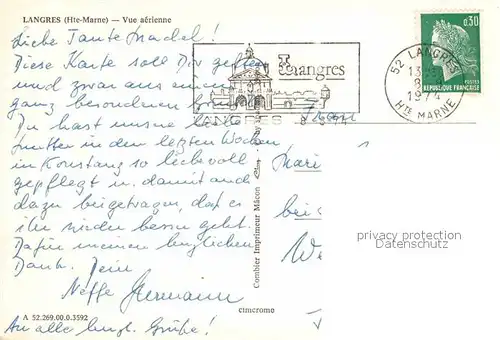 LANGRES (Hte-Marne) — Vue aérienne
Liebe Tante Madel!
Diese Karte soll Dir gelten
und zwar aus einem
ganz besonderen
Du hast unsere liebe
Mutter in den letzten Wochen
in Konstanz so liebevoll
gepflegt u. damit auch
dazu beigetragen, daß es
ihr wieder besser geht.
Dafür meinen herzlichen
Dank. Dein
Neffe Hermann
A 52.269.00.0.3592
An alle herzl. Grüße!
Langres
LANGRES
52 LANGRES
1974
HTE MARNE
0,30
POSTES
REPUBLIQUE FRANÇAISE
Combier Imprimeur Mâcon
cimcrome
Frau
Mari
bei
We
privacy protection
Datenschutz